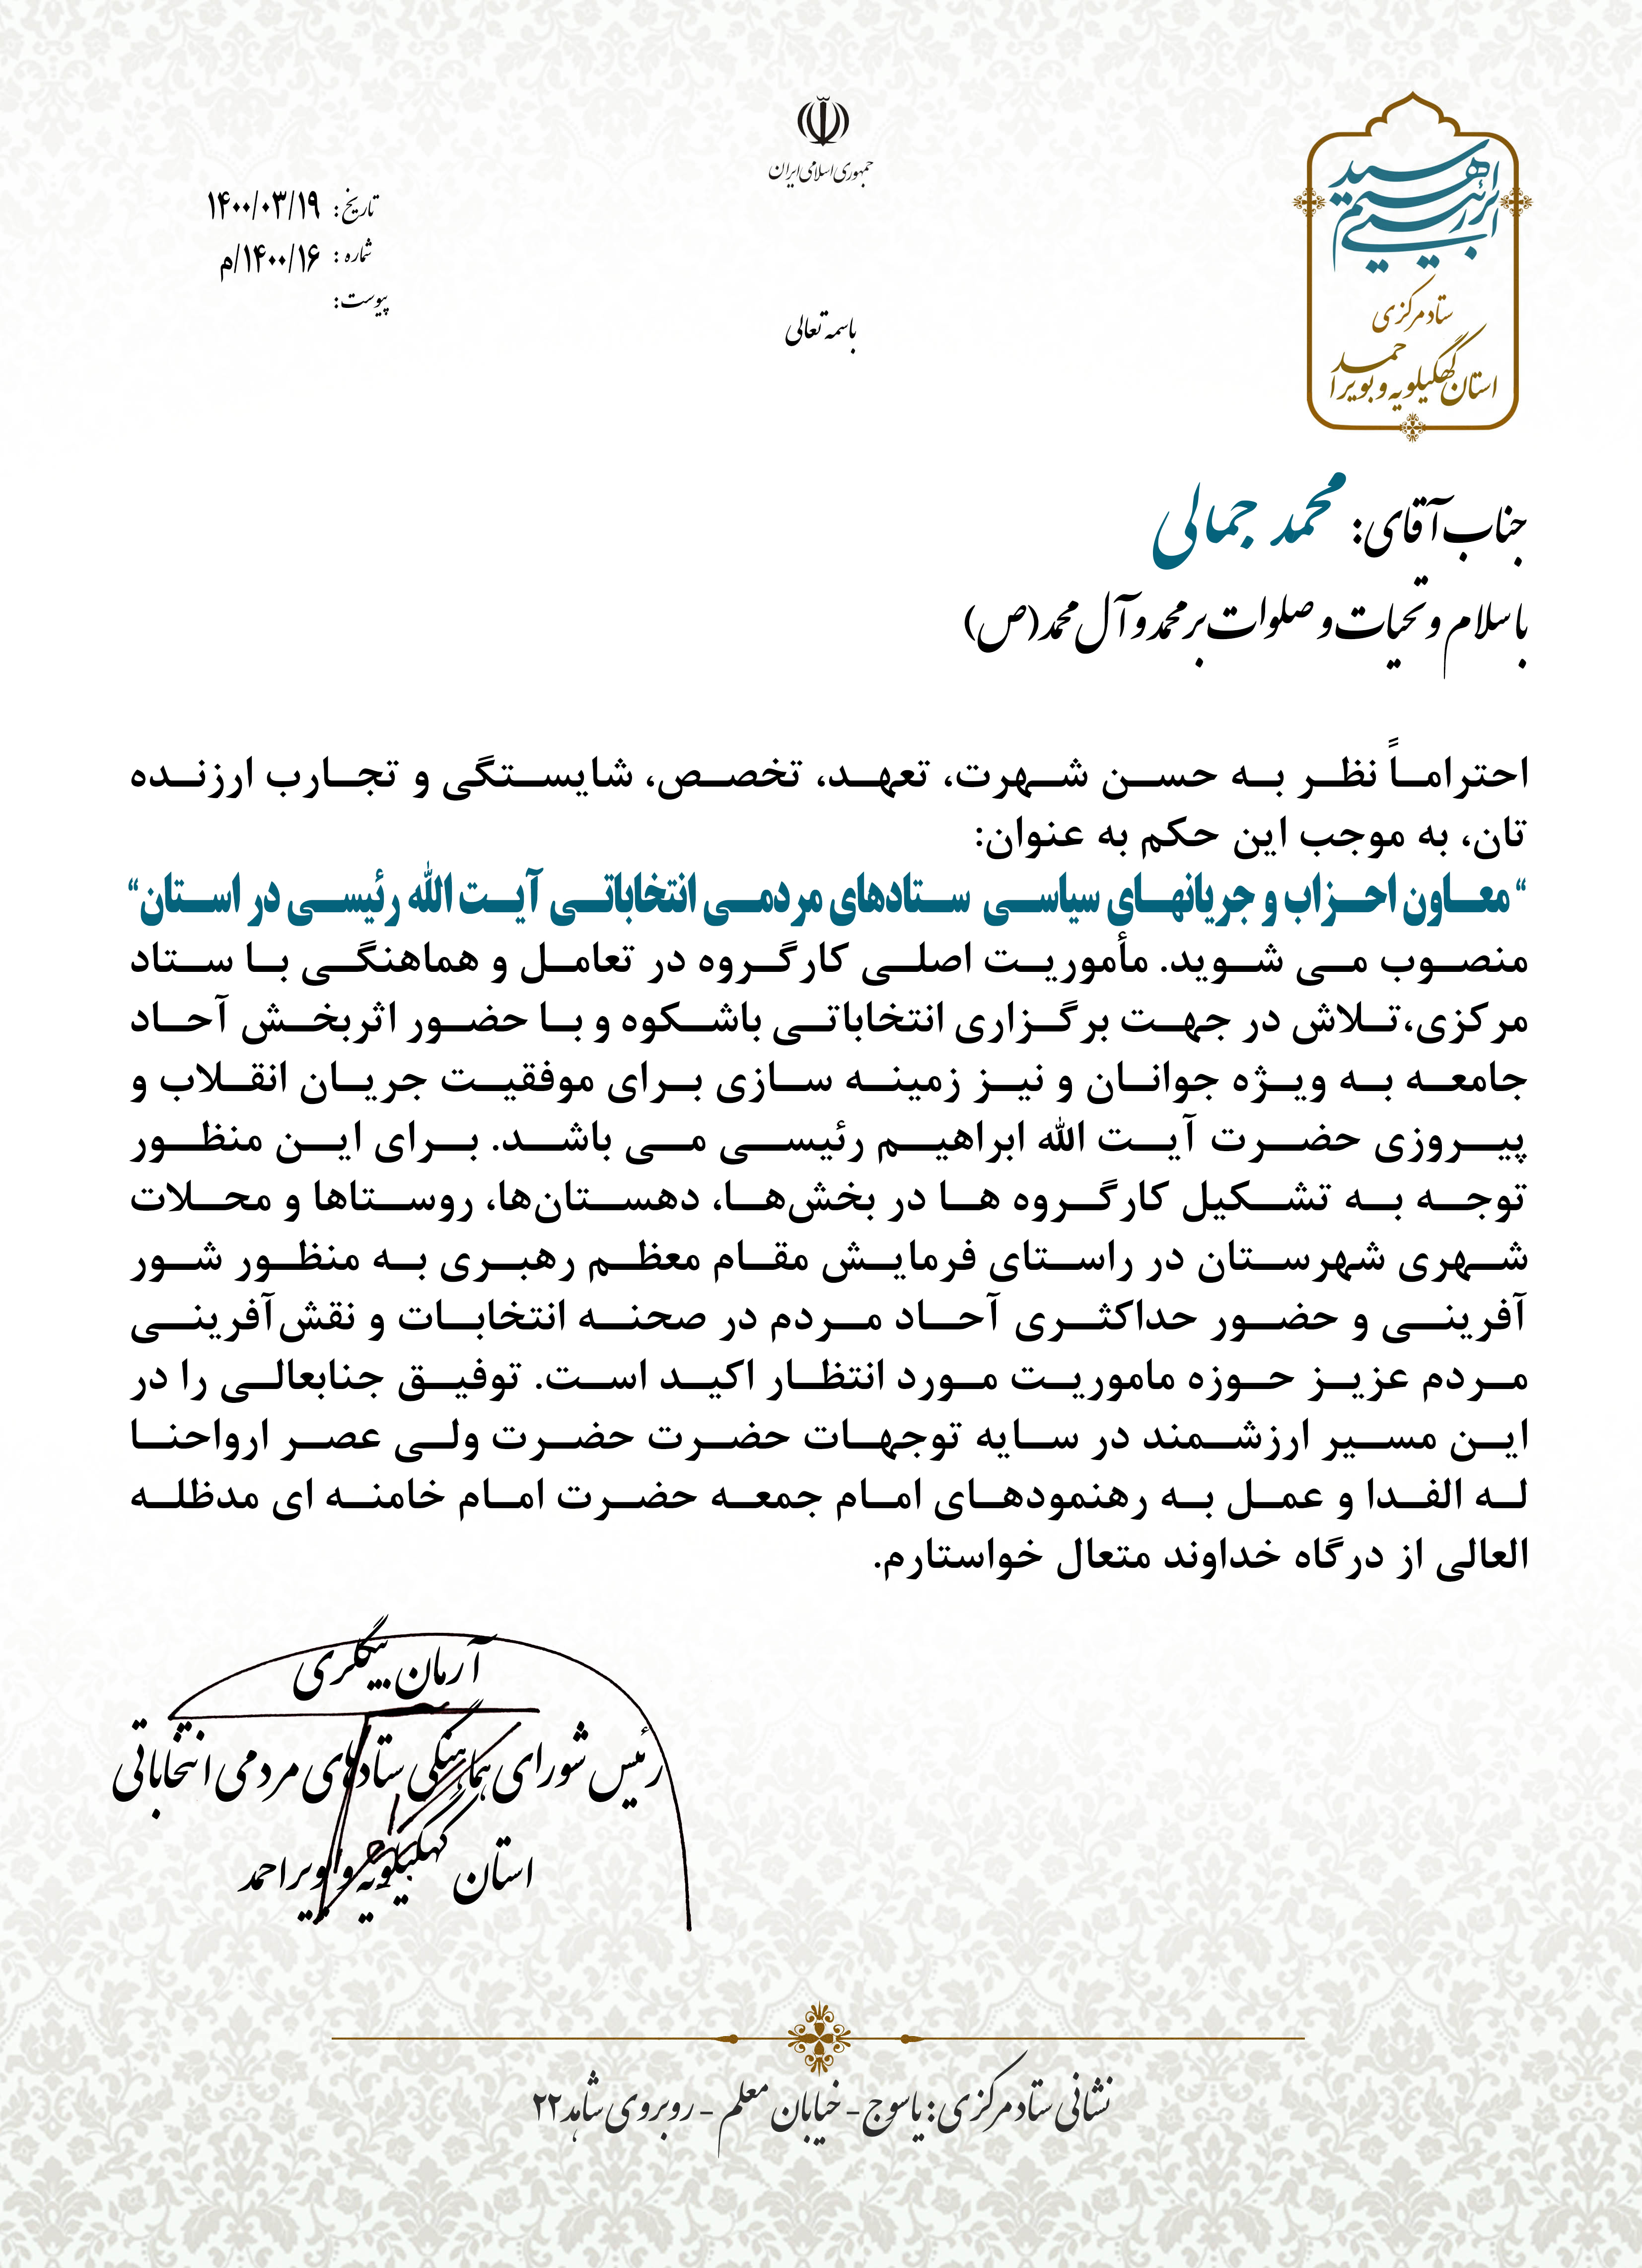 جمهوری اسلامی ایران
سید ابراهیم رئیسی
ستاد مرکزی
استان کهگیلویه و بویراحمد
تاریخ: ۱۴۰۰/۰۳/۱۹
شماره: ۱۴۰۰/۱۶/م
پیوست:
باسمه تعالی
جناب آقای: محمد جمالی
با سلام و تحیات و صلوات بر محمد و آل محمد (ص)
احتراماً نظر به حسن شهرت، تعهد، تخصص، شایستگی و تجارب ارزنده
تان، به موجب این حکم به عنوان:
“ معاون احزاب و جریانهای سیاسی ستادهای مردمی انتخاباتی آیت الله رئیسی در استان“
منصوب می شوید. مأموریت اصلی کارگروه در تعامل و هماهنگی با ستاد
مرکزی،تلاش در جهت برگزاری انتخاباتی باشکوه و با حضور اثربخش آحاد
جامعه به ویژه جوانان و نیز زمینه سازی برای موفقیت جریان انقلاب و
پیروزی حضرت آیت الله ابراهیم رئیسی می باشد. برای این منظور
توجه به تشکیل کارگروه ها در بخش‌ها، دهستان‌ها، روستاها و محلات
شهری شهرستان در راستای فرمایش مقام معظم رهبری به منظور شور
آفرینی و حضور حداکثری آحاد مردم در صحنه انتخابات و نقش‌آفرینی
مردم عزیز حوزه ماموریت مورد انتظار اکید است. توفیق جنابعالی را در
این مسیر ارزشمند در سایه توجهات حضرت حضرت ولی عصر ارواحنا
له الفدا و عمل به رهنمودهای امام جمعه حضرت امام خامنه ای مدظله
العالی از درگاه خداوند متعال خواستارم.
آرمان بیگلری
رئیس شورای هماهنگی ستادهای مردمی انتخاباتی
استان کهگیلویه و بویراحمد
نشانی ستاد مرکزی: یاسوج - خیابان معلم - روبروی شاهد ۲۲